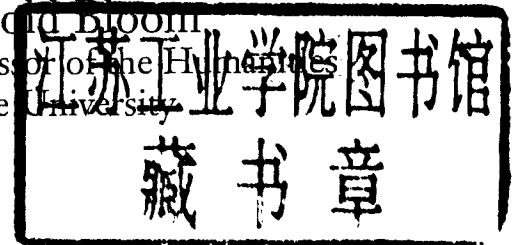 old Bloom
ssor of the Humanities
e University
江苏工业学院图书馆
藏书章